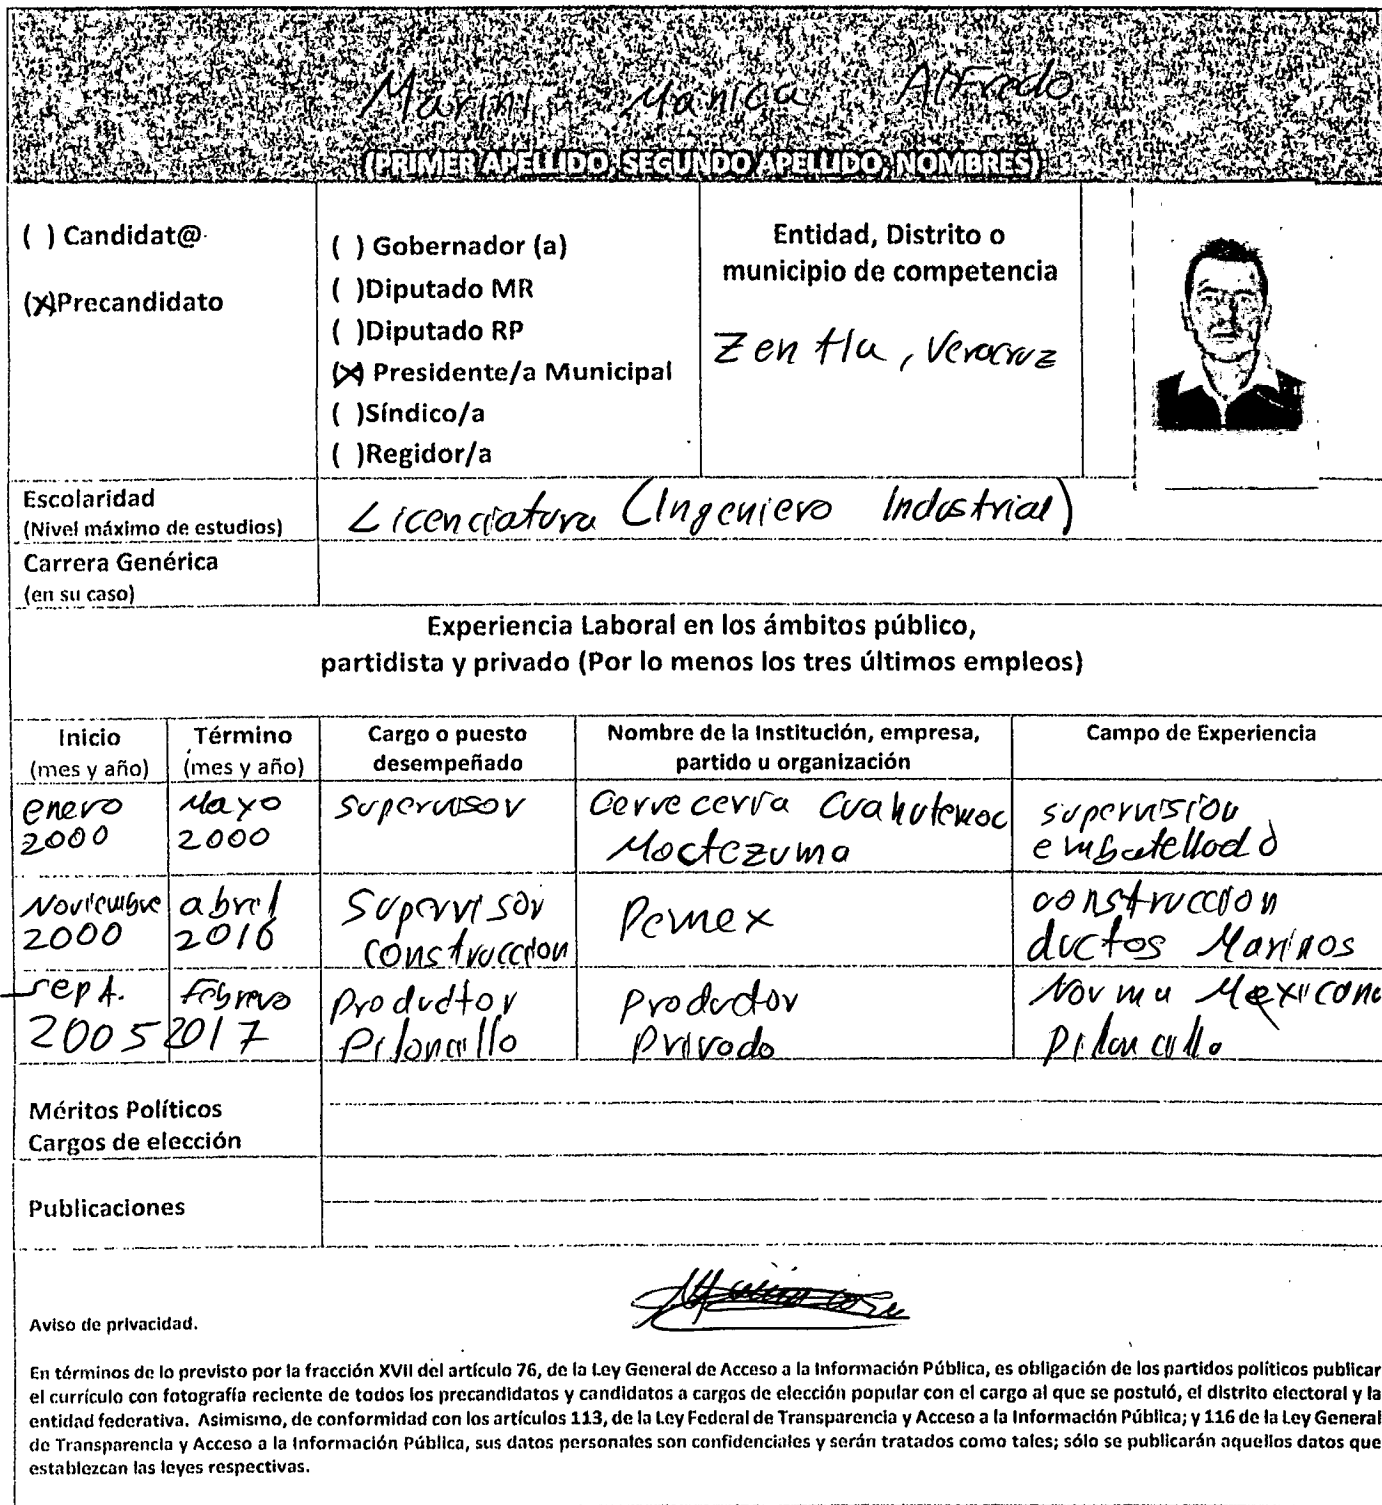 Marini Manica Alfredo
(PRIMER APELLIDO, SEGUNDO APELLIDO, NOMBRES)
( ) Candidat@
(X)Precandidato
( ) Gobernador (a)
( )Diputado MR
( )Diputado RP
(X) Presidente/a Municipal
( )Síndico/a
( )Regidor/a
Entidad, Distrito o
municipio de competencia
Zentla, Veracruz
Escolaridad
(Nivel máximo de estudios)
Licenciatura (Ingeniero Industrial)
Carrera Genérica
(en su caso)
Experiencia Laboral en los ámbitos público,
partidista y privado (Por lo menos los tres últimos empleos)
Inicio
(mes y año)
Término
(mes y año)
Cargo o puesto
desempeñado
Nombre de la Institución, empresa,
partido u organización
Campo de Experiencia
enero
2000
Mayo
2000
Supervisor
Cervecerra Cuahutemoc
Moctezuma
supervision
embotellado
Noviembre
2000
abril
2016
Supervisor
construccion
Pemex
construccion
ductos Marinos
sept.
2005
Febrero
2017
Productor
Piloncillo
Productor
Privado
Norma Mexicana
Piloncillo
Méritos Políticos
Cargos de elección
Publicaciones
Aviso de privacidad.
En términos de lo previsto por la fracción XVII del artículo 76, de la Ley General de Acceso a la Información Pública, es obligación de los partidos políticos publicar
el currículo con fotografía reciente de todos los precandidatos y candidatos a cargos de elección popular con el cargo al que se postuló, el distrito electoral y la
entidad federativa. Asimismo, de conformidad con los artículos 113, de la Ley Federal de Transparencia y Acceso a la Información Pública; y 116 de la Ley General
de Transparencia y Acceso a la Información Pública, sus datos personales son confidenciales y serán tratados como tales; sólo se publicarán aquellos datos que
establezcan las leyes respectivas.